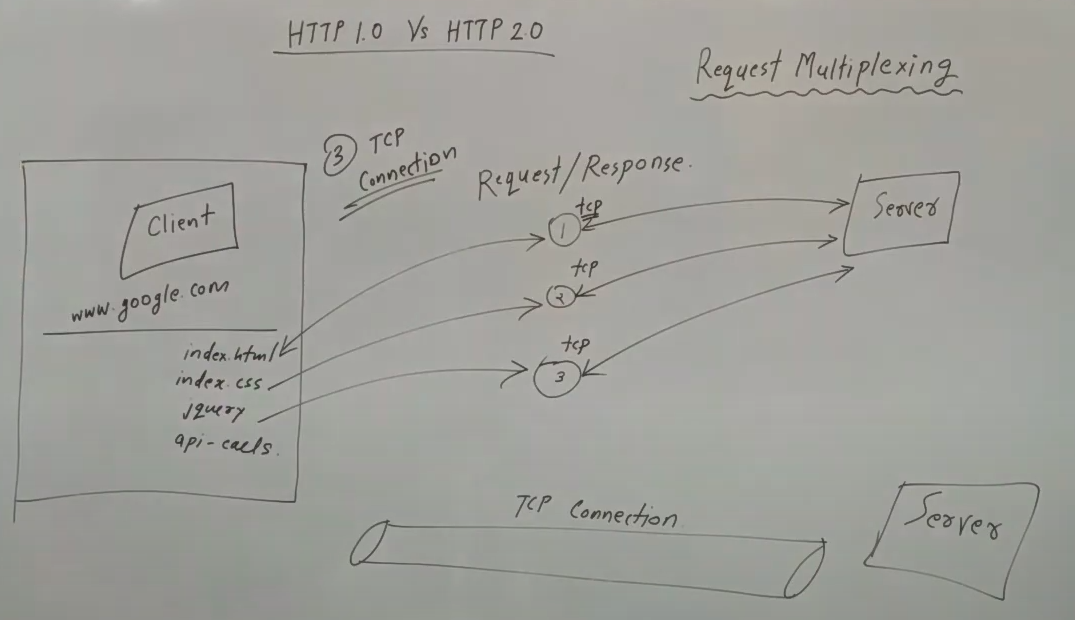 HTTP 1.0 Vs HTTP 2.0
Request Multiplexing
3 TCP
Connection
Request/Response.
Client
www.google.com
index.html
index.css
jquery
api-calls.
tcp
1
tcp
2
tcp
3
Server
TCP Connection
Server